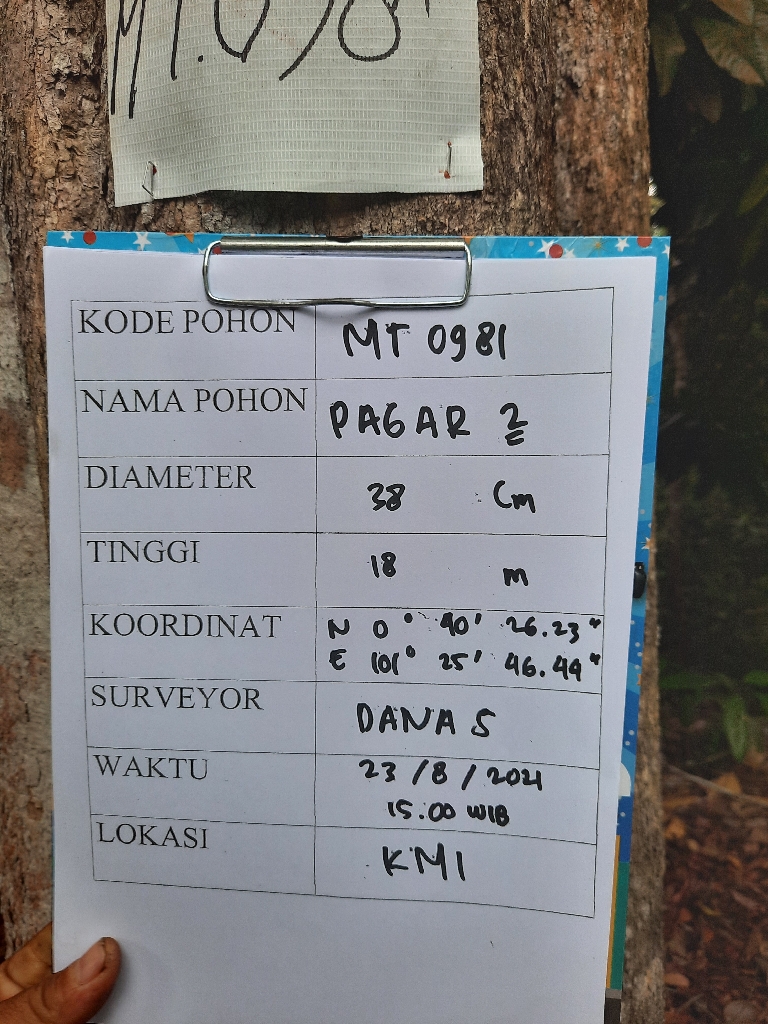 MT.0981
KODE POHON MT 0981
NAMA POHON PAGAR 2
DIAMETER 38 Cm
TINGGI 18 m
KOORDINAT N 0° 40' 26.23"
E 101° 25' 46.44"
SURVEYOR DANA S
WAKTU 23/8/2021
15:00 WIB
LOKASI KMI